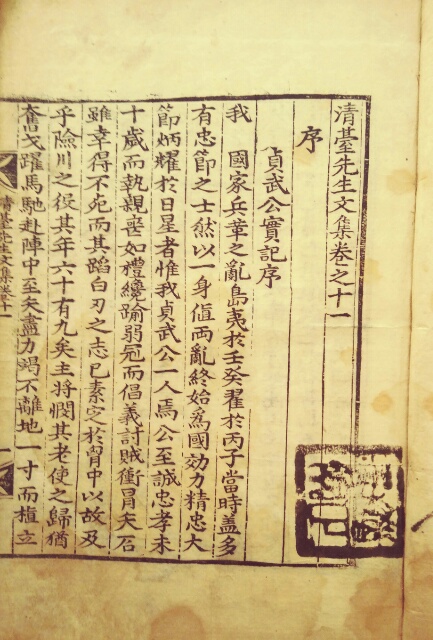 清臺先生文集卷之十一
序
貞武公實記序
我　國家兵革之亂島夷於壬癸翟於丙子當時盖多
有忠節之士然以一身値兩亂終始爲國効力精忠大
節炳耀於日星者惟我貞武公一人焉公至誠忠孝未
十歲而執親喪如禮纔踰弱冠而倡義討賊衝冒矢石
雖幸得不死而其蹈白刃之志已素定於胷中以故及
乎險川之役其年六十有九矣主將憫其老使之歸猶
奮戈躍馬馳赴陣中至矢盡力竭不離地一寸而植立
清臺先生文集卷十一